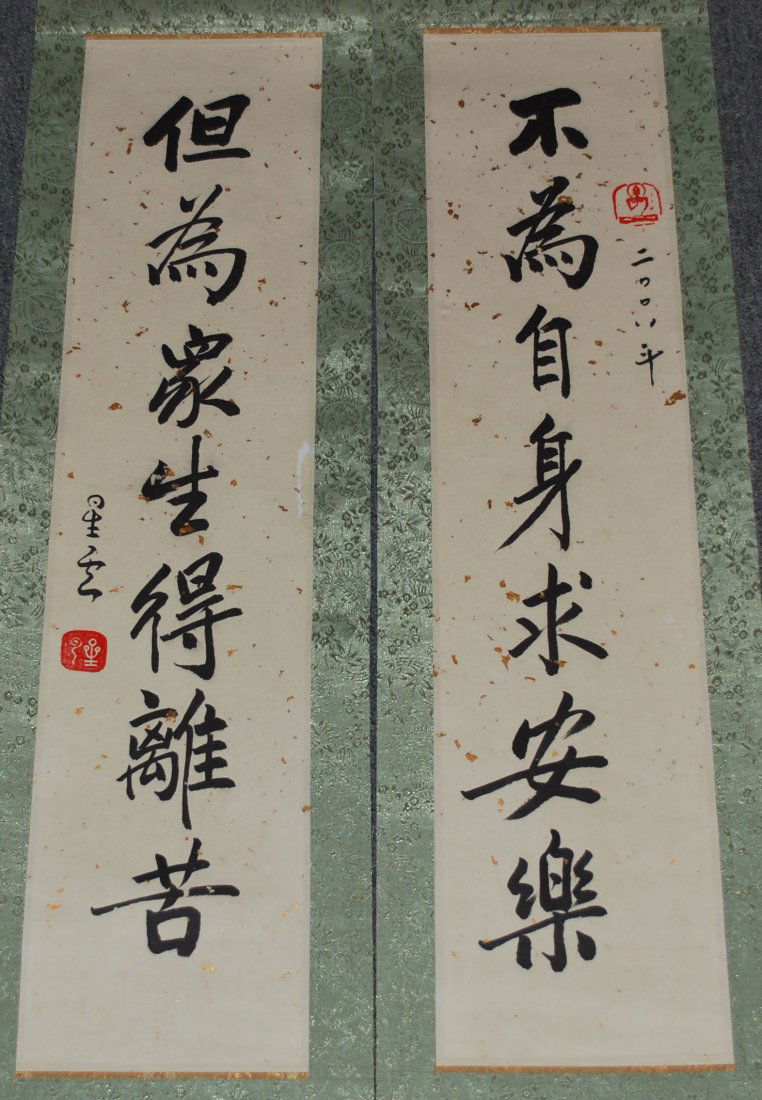 不為自身求安樂
二〇〇八年
但為眾生得離苦
星雲